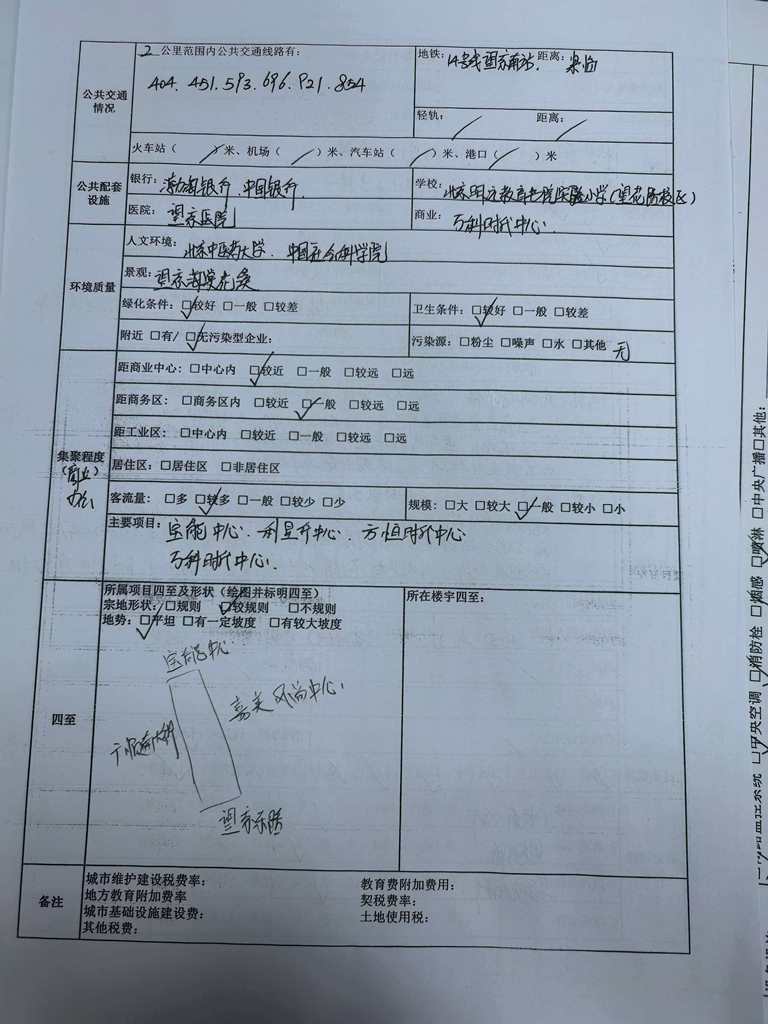 公共交通情况
2 公里范围内公共交通线路有:
404. 451. 593. 696. 921. 854
地铁: 14号线望京南站. 距离:
轻轨: / 距离: /
火车站( / )米、机场( / )米、汽车站( / )米、港口( / )米
公共配套设施
银行: 渤海银行. 中国银行.
学校: 小学(望花路校区)
医院: 望京医院
商业: 万科时代中心.
环境质量
人文环境: 北京中医药大学. 中国社会科学院
景观: 望京
绿化条件: ☑较好 □一般 □较差
卫生条件: ☑较好 □一般 □较差
附近 □有/ ☑无污染型企业:
污染源: □粉尘 □噪声 □水 □其他 无
集聚程度
(商业
办公)
距商业中心: □中心内 ☑较近 □一般 □较远 □远
距商务区: □商务区内 □较近 ☑一般 □较远 □远
距工业区: □中心内 □较近 □一般 □较远 □远
居住区: □居住区 □非居住区
客流量: □多 ☑较多 □一般 □较少 □少
规模: □大 □较大 ☑一般 □较小 □小
主要项目: 宝能中心. 利星行中心. 方恒时代中心
万科时代中心.
四至
所属项目四至及形状(绘图并标明四至)
宗地形状: □规则 ☑较规则 □不规则
地势: ☑平坦 □有一定坡度 □有较大坡度
所在楼宇四至:
宝能中心
嘉美风尚中心.
望京东路
备注
城市维护建设税费率:
教育费附加费用:
地方教育附加费率
契税费率:
城市基础设施建设费:
土地使用税:
其他税费:
□中央空调 □消防栓 □烟感 □喷淋 □中央广播 □其他: